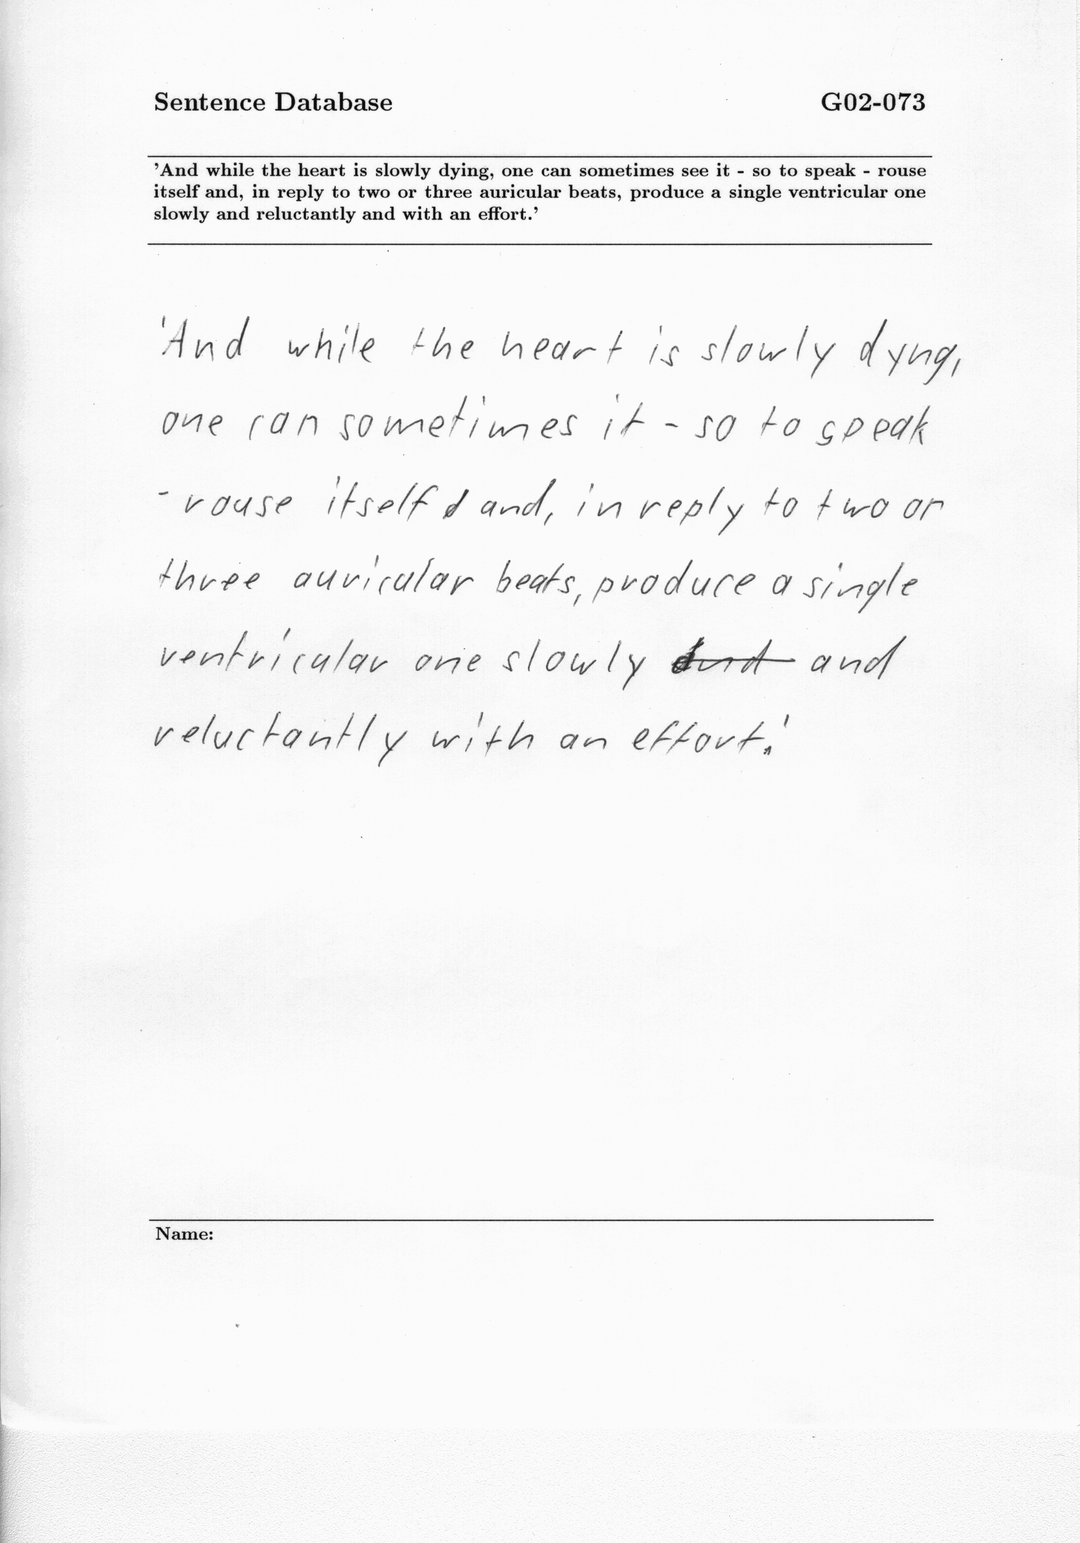 Sentence Database G02-073
'And while the heart is slowly dying, one can sometimes see it - so to speak - rouse
itself and, in reply to two or three auricular beats, produce a single ventricular one
slowly and reluctantly and with an effort.'
'And while the heart is slowly dyng,
one can sometimes it - so to speak
- rouse itself and, in reply to two or
three auricular beats, produce a single
ventricular one slowly and
reluctantly with an effort.'
Name: